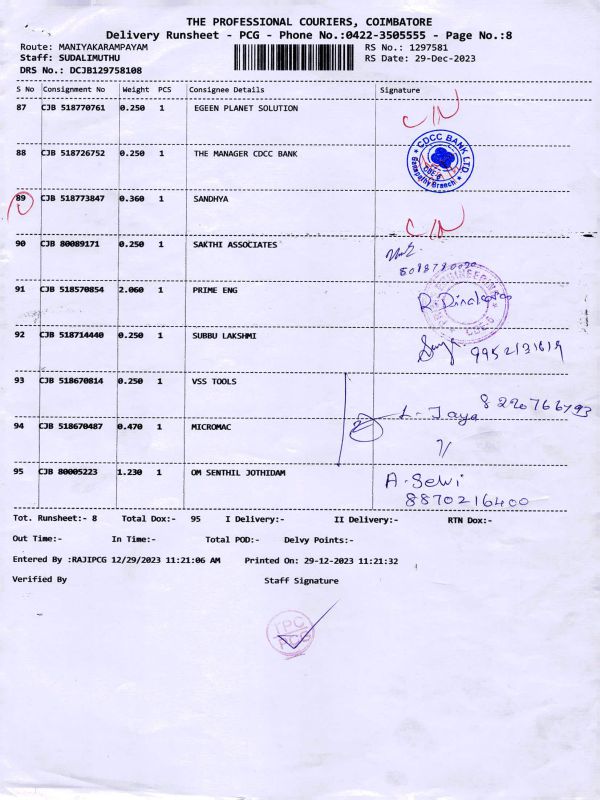 THE PROFESSIONAL COURIERS, COIMBATORE
Delivery Runsheet - PCG - Phone No.:0422-3505555 - Page No.:8
Route: MANIYAKARAMPAYAM RS No.: 1297581
Staff: SUDALIMUTHU RS Date: 29-Dec-2023
DRS No.: DCJB129758108
S No Consignment No Weight PCS Consignee Details Signature
87 CJB 518770761 0.250 1 EGEEN PLANET SOLUTION
88 CJB 518726752 0.250 1 THE MANAGER CDCC BANK
CDCC BANK LTD
CBE-6
Ganapathy Branch
89 CJB 518773847 0.360 1 SANDHYA
90 CJB 80089171 0.250 1 SAKTHI ASSOCIATES
91 CJB 518570854 2.060 1 PRIME ENG
ENGINEERING
CBE-6
92 CJB 518714440 0.250 1 SUBBU LAKSHMI
9952131619
93 CJB 518670814 0.250 1 VSS TOOLS
L. Jaya 8220766793
94 CJB 518670487 0.470 1 MICROMAC
95 CJB 80005223 1.230 1 OM SENTHIL JOTHIDAM A. Selvi
8870216400
Tot. Runsheet:- 8 Total Dox:- 95 I Delivery:- II Delivery:- RTN Dox:-
Out Time:- In Time:- Total POD:- Delvy Points:-
Entered By :RAJIPCG 12/29/2023 11:21:06 AM Printed On: 29-12-2023 11:21:32
Verified By Staff Signature
TPC
PCB